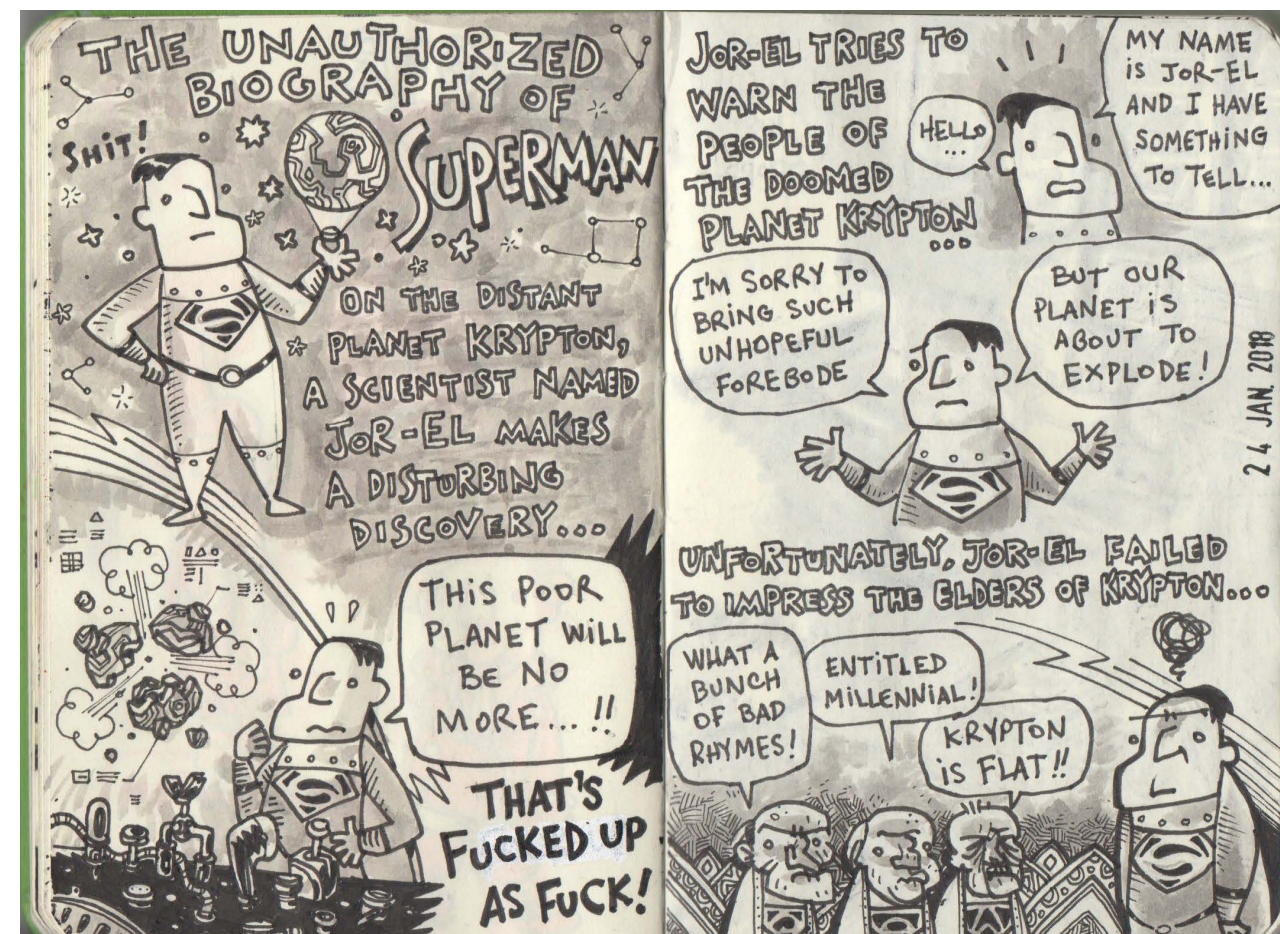 THE UNAUTHORIZED
BIOGRAPHY OF
SUPERMAN
SHIT!
ON THE DISTANT
PLANET KRYPTON,
A SCIENTIST NAMED
JOR-EL MAKES
A DISTURBING
DISCOVERY...
THIS POOR
PLANET WILL
BE NO
MORE...!!
THAT'S
FUCKED UP
AS FUCK!
JOR-EL TRIES TO
WARN THE
PEOPLE OF
THE DOOMED
PLANET KRYPTON
...
HELLO
...
MY NAME
iS JOR-EL
AND I HAVE
SOMETHING
TO TELL...
I'M SORRY TO
BRING SUCH
UNHOPEFUL
FOREBODE
BUT OUR
PLANET iS
ABOUT TO
EXPLODE!
24 JAN. 2018
UNFORTUNATELY, JOR-EL FAILED
TO IMPRESS THE ELDERS OF KRYPTON...
WHAT A
BUNCH
OF BAD
RHYMES!
ENTiTLED
MiLLENNiAL!
KRYPTON
iS FLAT!!